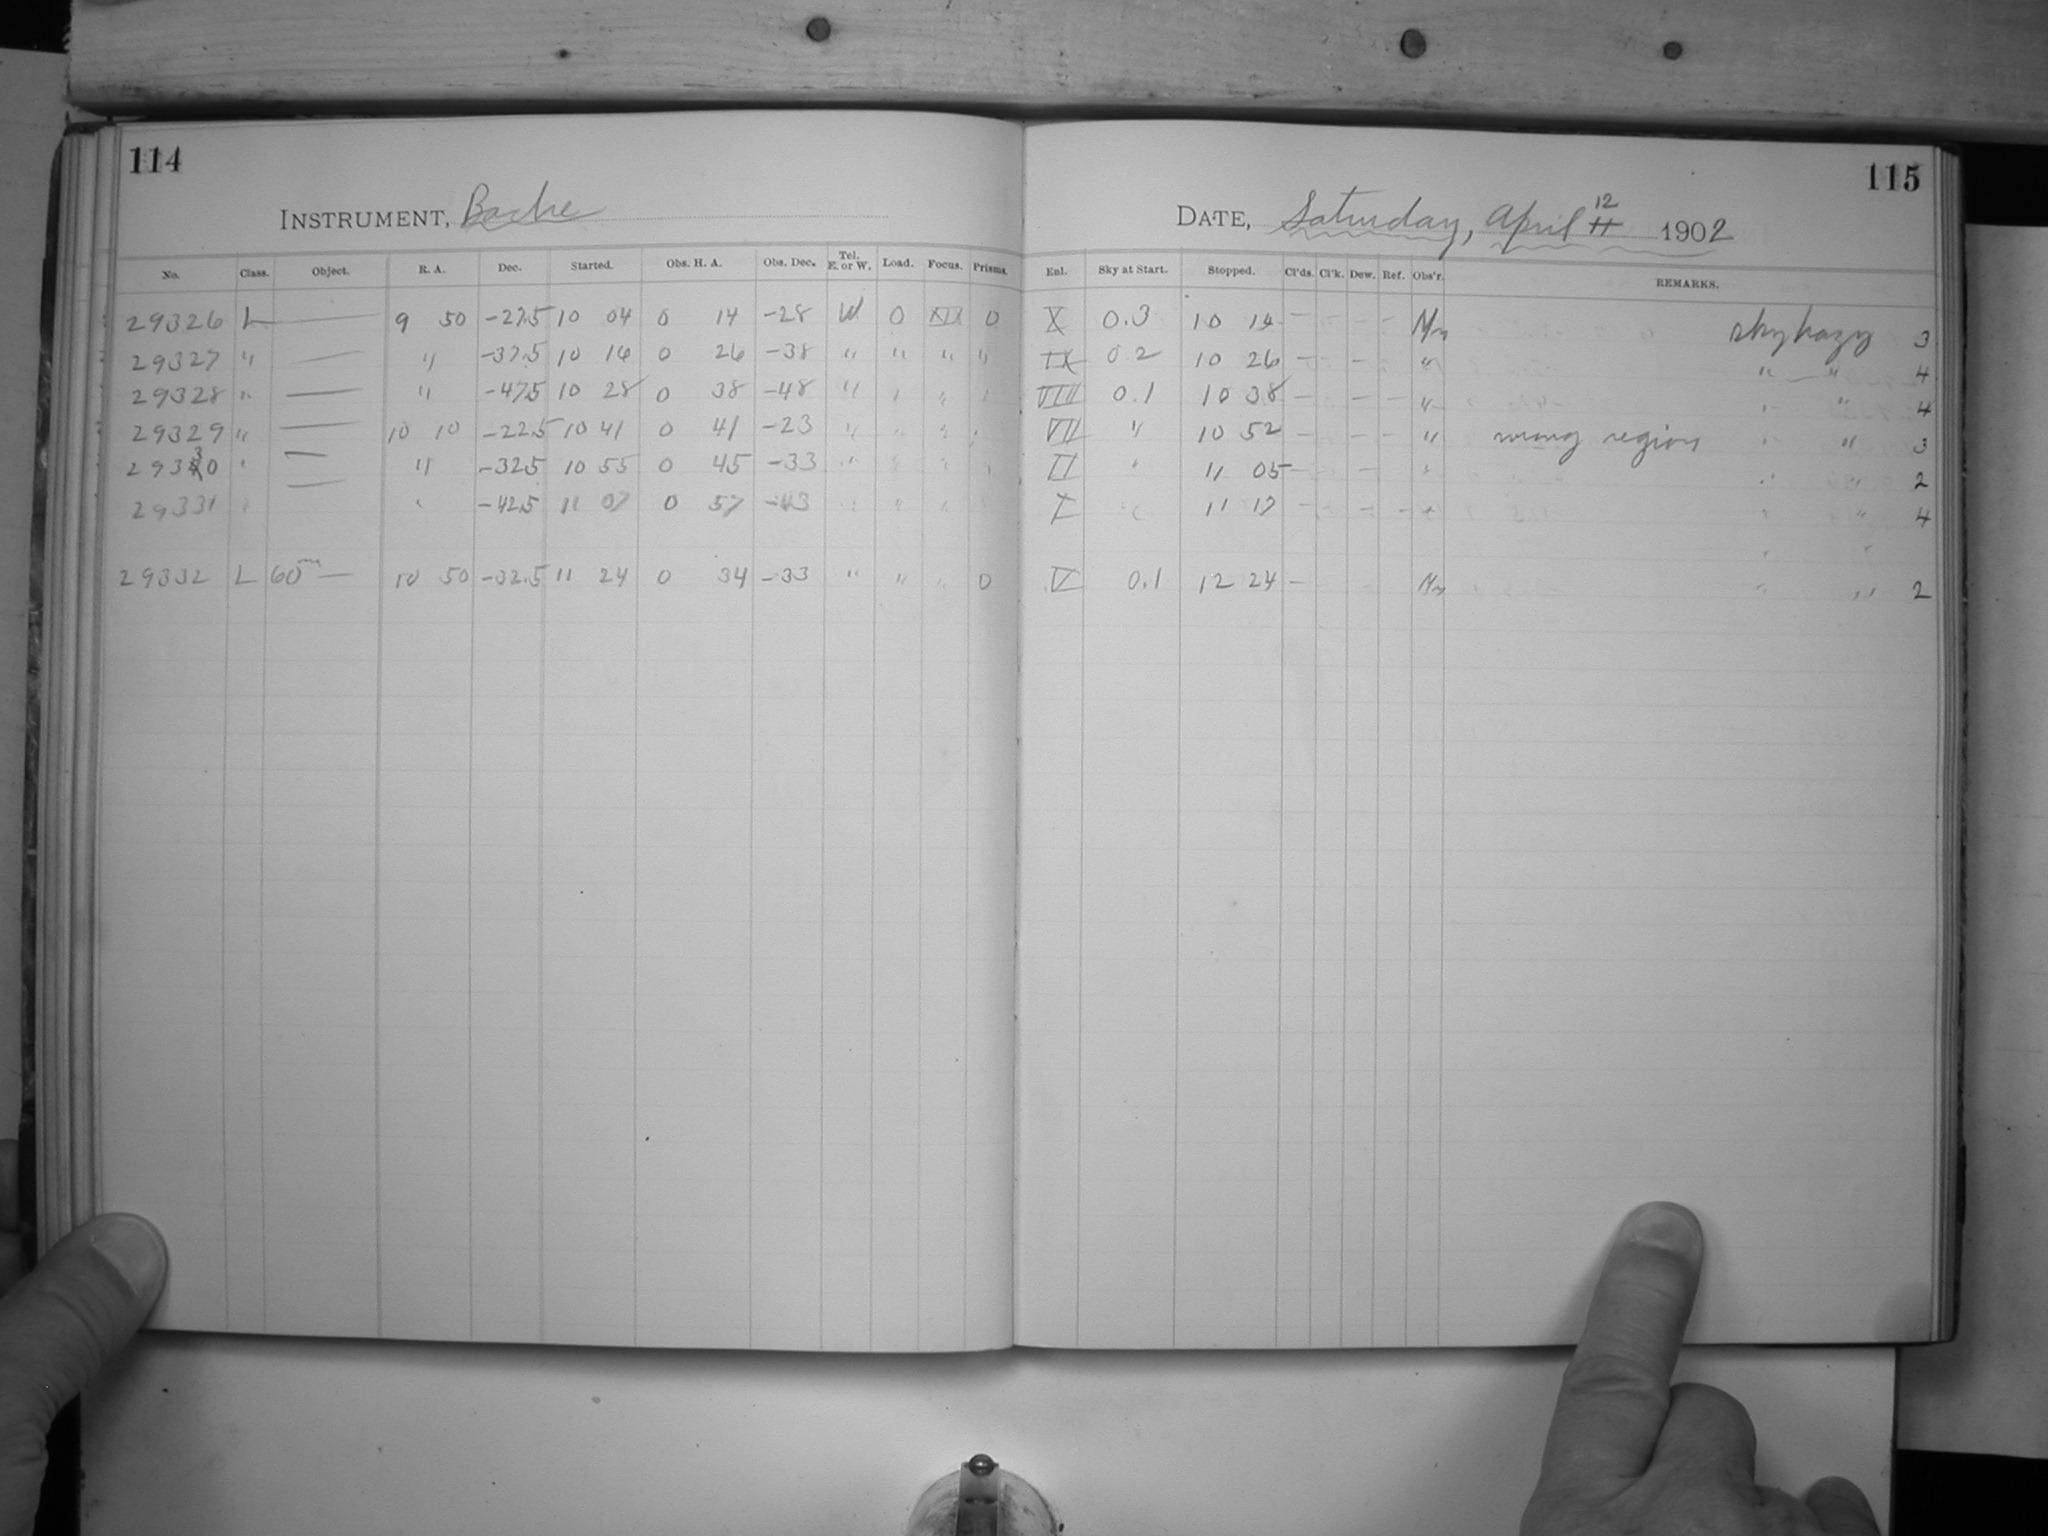 114
115
INSTRUMENT, Bache
DATE, Saturday, April 12 11 1902
No. Class. Object. R. A. Dec. Started. Obs. H. A. Obs. Dec. Tel. E. or W. Load. Focus. Prisms. Enl. Sky at Start. Stopped. Cl'ds. Cl'k. Dew. Ref. Obs'r. REMARKS.
29326 L — 9 50 -27.5 10 04 0 14 -28 W 0 XIX 0 X 0.3 10 14 — — — — sky hazy 3
29327 " — " -37.5 10 16 0 26 -38 " " " " IX 0.2 10 26 — — — — " " — " 4
29328 " — " -47.5 10 28 0 38 -48 " " " " VIII 0.1 10 38 — — — — " " " 4
29329 " — 10 10 -22.5 10 41 0 41 -23 " " " " VII " 10 52 — — — — " wrong region " " 3
29330 " — " -32.5 10 55 0 45 -33 " " " " II " 11 05 — — — " " " 2
29331 " — " -42.5 11 07 0 57 -43 " " " " I " 11 17 — — — — " " " 4
" "
29332 L 60m — 10 50 -32.5 11 24 0 34 -33 " " " 0 V 0.1 12 24 — — — " " 2